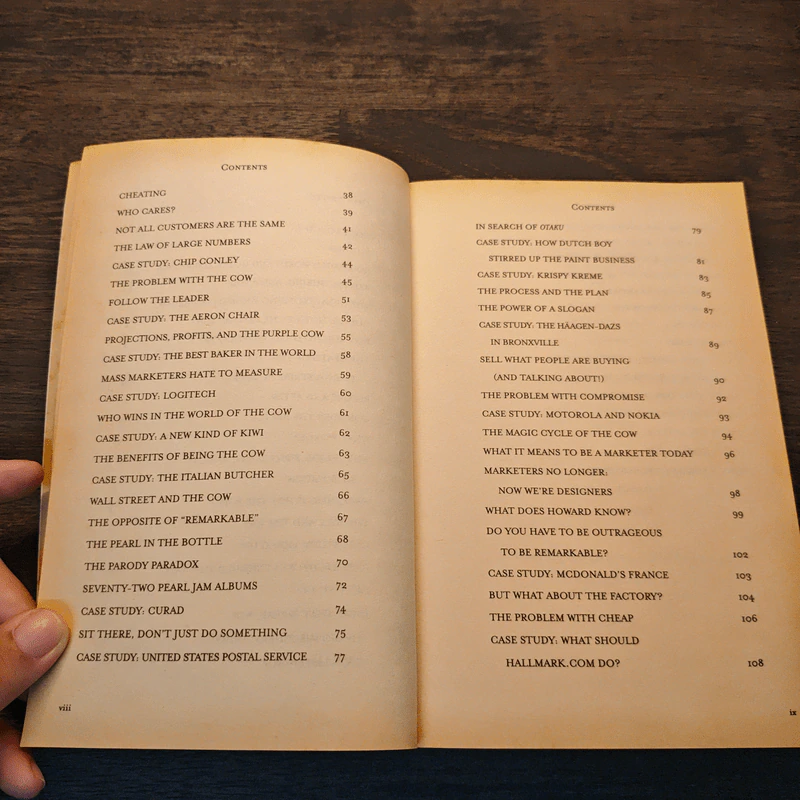 CONTENTS
CHEATING 38
WHO CARES? 39
NOT ALL CUSTOMERS ARE THE SAME 41
THE LAW OF LARGE NUMBERS 42
CASE STUDY: CHIP CONLEY 44
THE PROBLEM WITH THE COW 45
FOLLOW THE LEADER 51
CASE STUDY: THE AERON CHAIR 53
PROJECTIONS, PROFITS, AND THE PURPLE COW 55
CASE STUDY: THE BEST BAKER IN THE WORLD 58
MASS MARKETERS HATE TO MEASURE 59
CASE STUDY: LOGITECH 60
WHO WINS IN THE WORLD OF THE COW 61
CASE STUDY: A NEW KIND OF KIWI 62
THE BENEFITS OF BEING THE COW 63
CASE STUDY: THE ITALIAN BUTCHER 65
WALL STREET AND THE COW 66
THE OPPOSITE OF "REMARKABLE" 67
THE PEARL IN THE BOTTLE 68
THE PARODY PARADOX 70
SEVENTY-TWO PEARL JAM ALBUMS 72
CASE STUDY: CURAD 74
SIT THERE, DON'T JUST DO SOMETHING 75
CASE STUDY: UNITED STATES POSTAL SERVICE 77
viii
CONTENTS
IN SEARCH OF OTAKU 79
CASE STUDY: HOW DUTCH BOY
STIRRED UP THE PAINT BUSINESS 81
CASE STUDY: KRISPY KREME 83
THE PROCESS AND THE PLAN 85
THE POWER OF A SLOGAN 87
CASE STUDY: THE HÄAGEN-DAZS
IN BRONXVILLE 89
SELL WHAT PEOPLE ARE BUYING
(AND TALKING ABOUT!) 90
THE PROBLEM WITH COMPROMISE 92
CASE STUDY: MOTOROLA AND NOKIA 93
THE MAGIC CYCLE OF THE COW 94
WHAT IT MEANS TO BE A MARKETER TODAY 96
MARKETERS NO LONGER:
NOW WE'RE DESIGNERS 98
WHAT DOES HOWARD KNOW? 99
DO YOU HAVE TO BE OUTRAGEOUS
TO BE REMARKABLE? 102
CASE STUDY: MCDONALD'S FRANCE 103
BUT WHAT ABOUT THE FACTORY? 104
THE PROBLEM WITH CHEAP 106
CASE STUDY: WHAT SHOULD
HALLMARK.COM DO? 108
ix